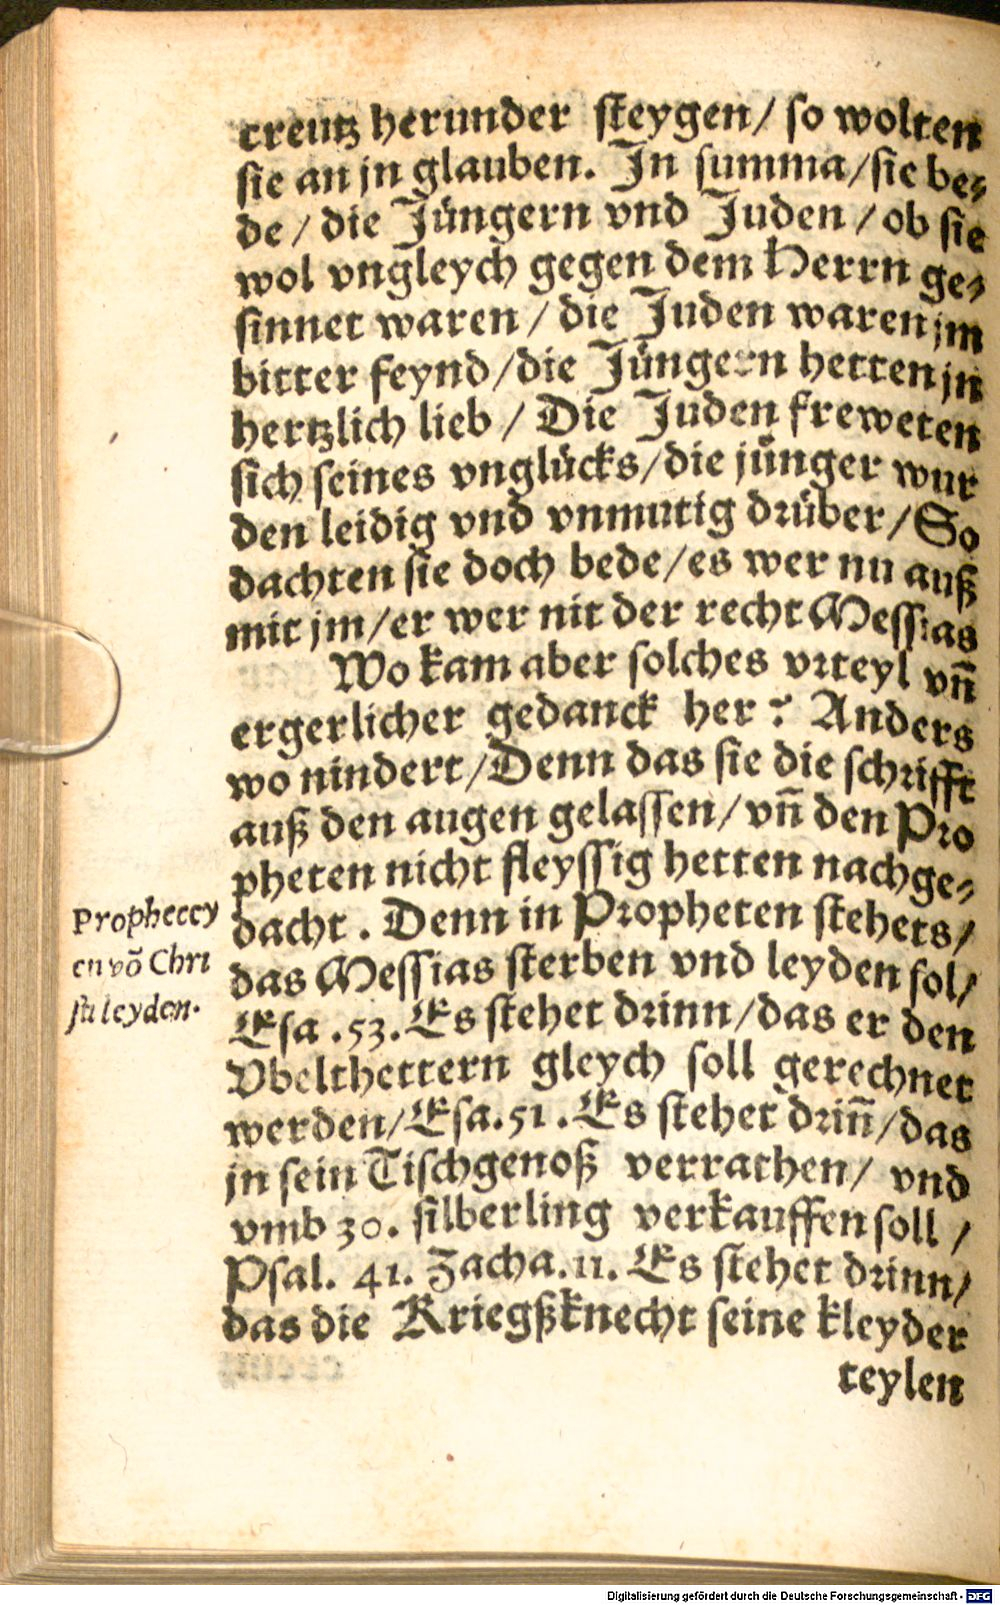 creutz herunder steygen/ so wolten
sie an jn glauben. In summa/sie be-
de/ die Jüngern vnd Juden/ ob sie
wol vngleych gegen dem Herrn ge-
sinnet waren/ die Juden waren jm
bitter feynd/die Jüngern hetten jn
hertzlich lieb/ Die Juden freweten
sich seines vnglücks/die jünger wur
den leidig vnd vnmutig drüber/So
dachten sie doch bede/es wer nu auß
mit jm/er wer nit der recht Messias
Wo kam aber solches vrteyl vñ
ergerlicher gedanck her? Anders
wo nindert/Denn das sie die schrifft
auß den augen gelassen/vñ den Pro
pheten nicht fleyssig hetten nachge-
dacht. Denn in Propheten stehets/
das Messias sterben vnd leyden sol/
Esa .53. Es stehet drinn/das er den
Vbelthettern gleych soll gerechnet
werden/Esa.51. Es stehet driñ/das
jn sein Tischgenoß verrathen/ vnd
vmb 30. silberling verkauffen soll/
Psal. 41. Zacha.11. Es stehet drinn/
das die Kriegßknecht seine kleyder
teylen
Prophecey
en võ Chri
sti leyden.
Digitalisierung gefördert durch die Deutsche Forschungsgemeinschaft - DFG